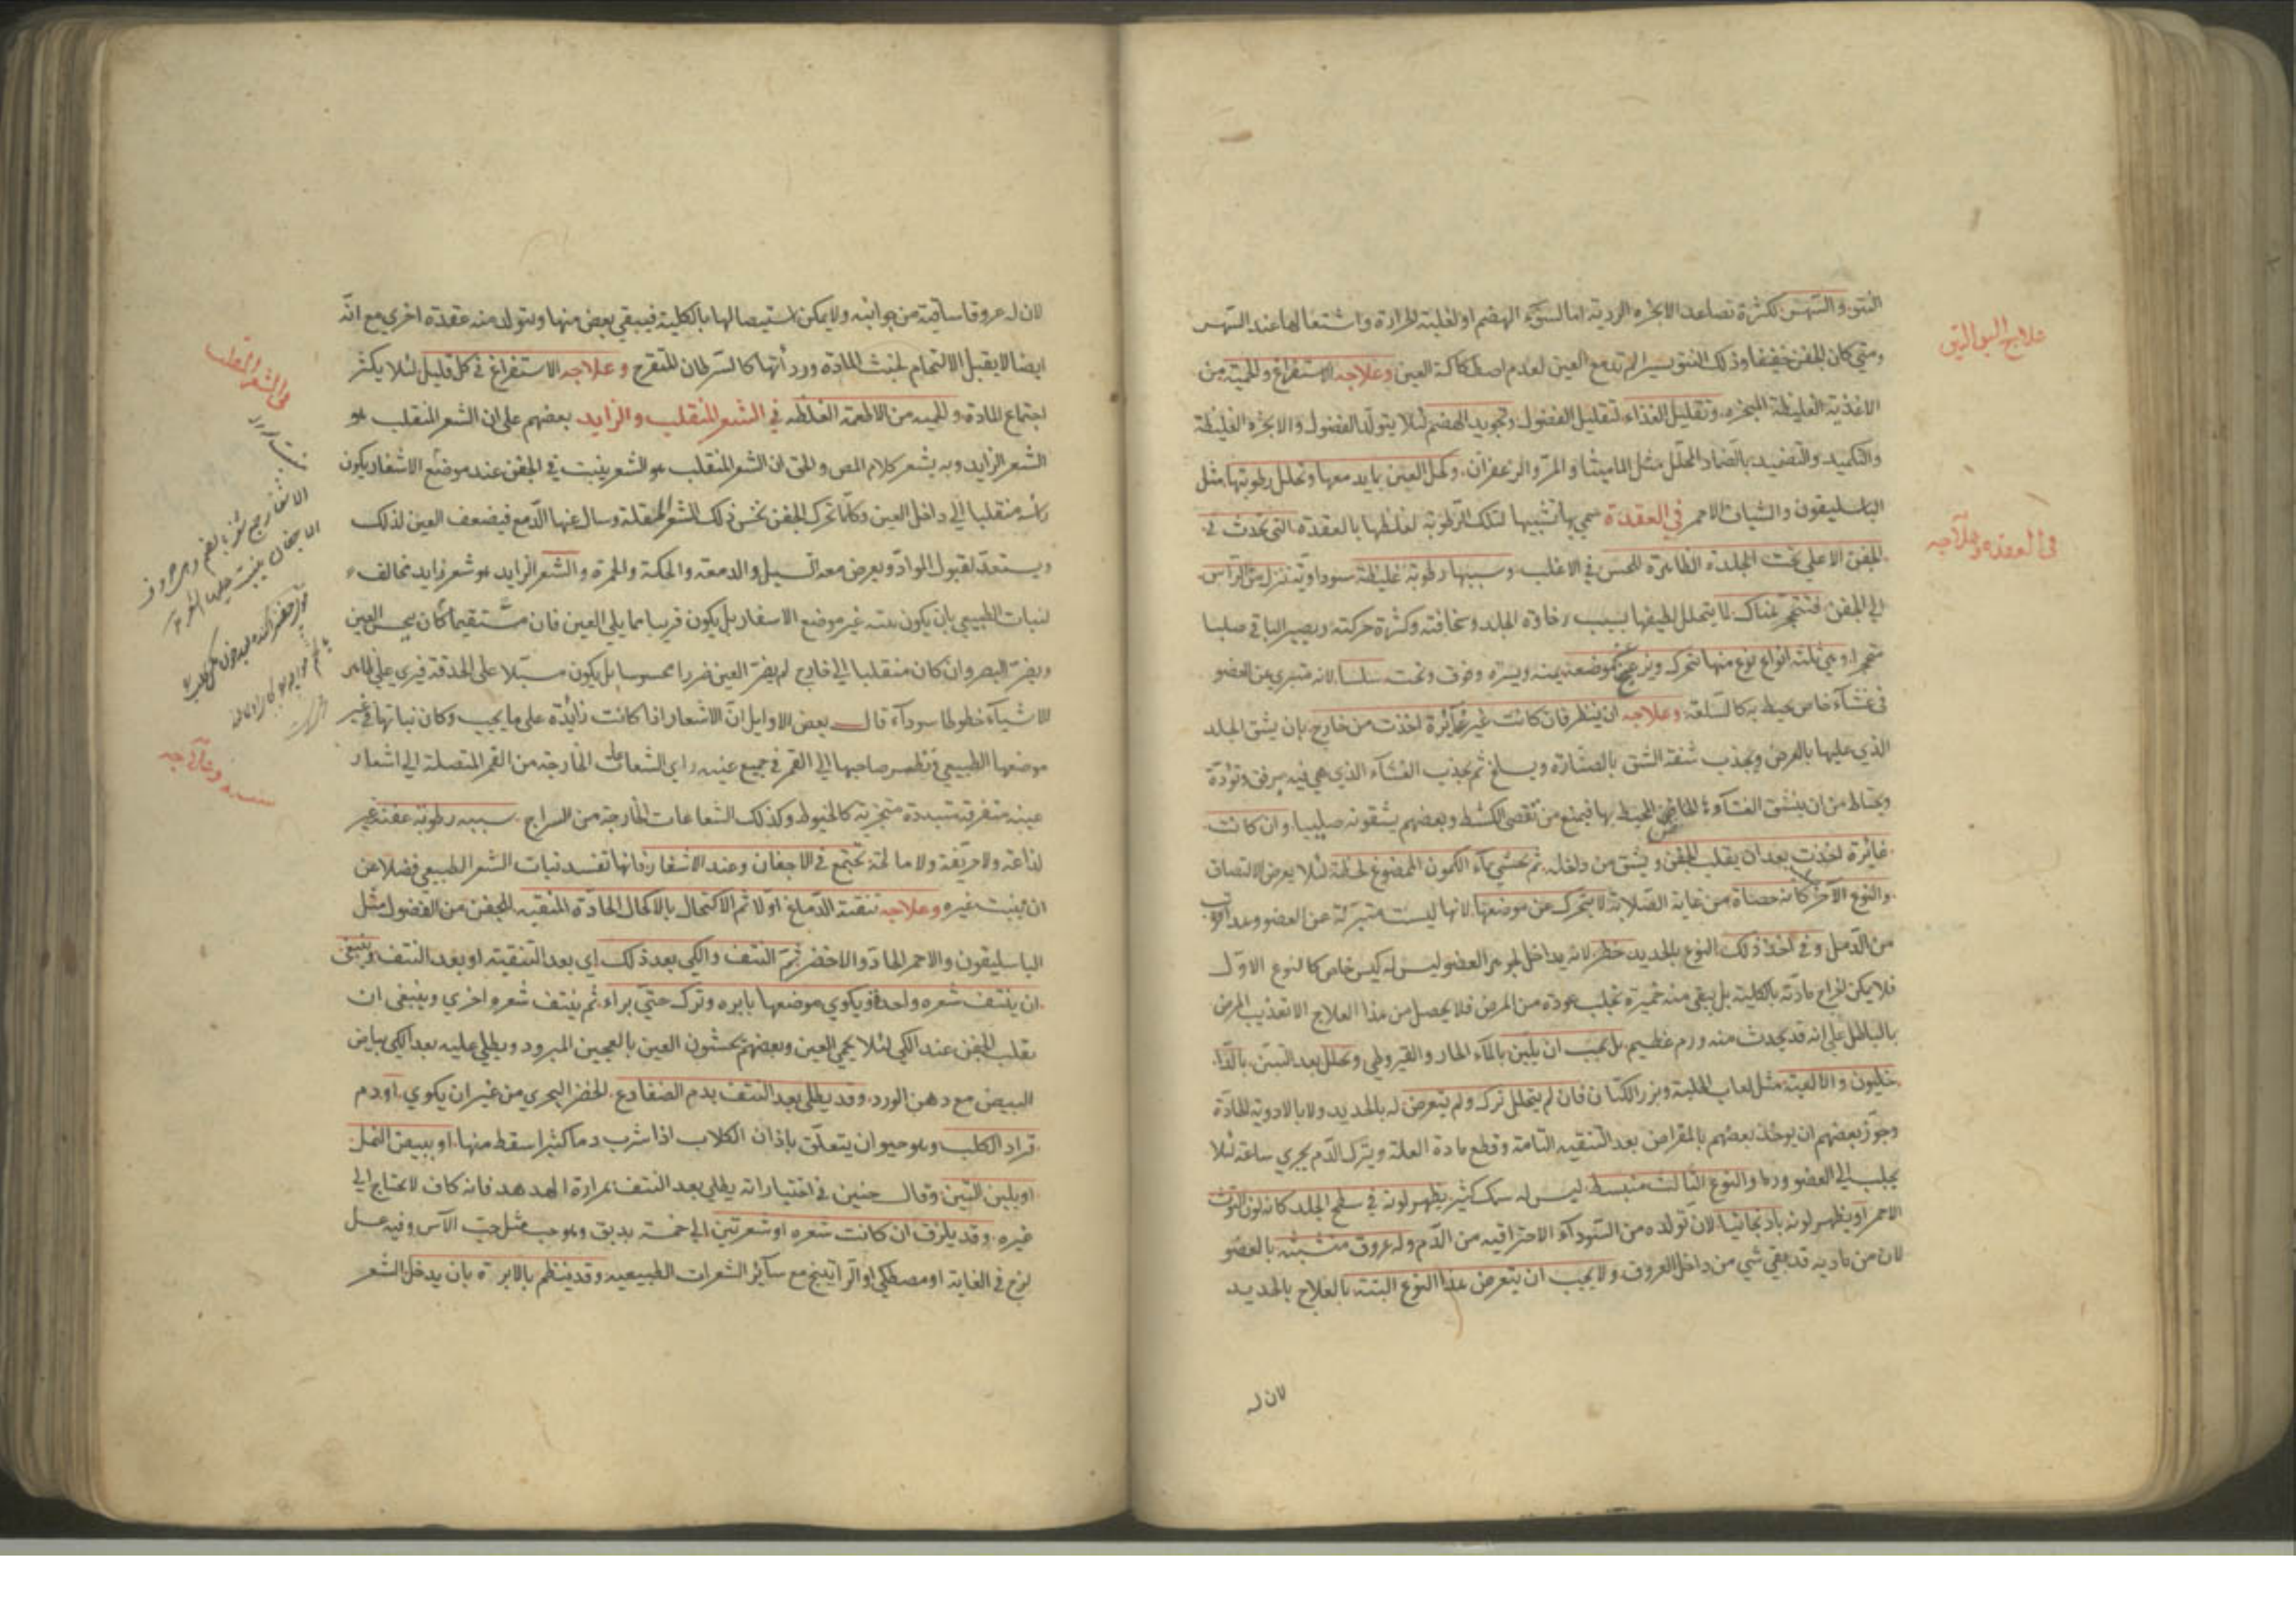 النتو والسهر لكثرة تصاعد الابخره الردية اما لسوء الهضم او لغلبة الحرارة واشتعالها عند السهر
ومتي كان الجفن خفيفا وذلك النتو يسيرا لم تدمع العين لعدم اصطكاكة العين وعلاجه الاستفراغ والحمية من
الاغذية الغليظة المبخره وتقليل الغذاء لتقليل الفضول وتجويد الهضم لئلا يتولد الفضول والابخره الغليظة
والتكميد والتضميد بالضماد المحلل مثل الماميثا والمر والزعفران وكحل العين بما يدمعها وتحلل رطوبتها مثل
الباسليقون والشياف الاحمر في العقدة سمي بها تشبيها لتلك الرطوبة لغلظها بالعقدة التي تحدث في
الجفن الاعلي تحت الجلدة الظاهرة للحس في الاغلب وسببها رطوبة غليظة سوداوية تنزل من الراس
الي الجفن فتتحجر هناك لا يتحلل لطيفها بسبب رخاوة الجلد وسخافته وكثرة حركته ويصير الباقي صلبا
متحجرا وهي ثلثة انواع نوع منها تتحرك وتزعج عن موضعه يمنة ويسرة وفوق وتحت سلسا لانه متبري من العضو
في غشاء خاص يحيط به كالسلعة وعلاجه ان ينظر فان كانت غير غايرة اخذت من خارج بان يشق الجلد
الذي عليها بالعرض ويجذب شفة الشق بالصنارة ويسلخ ثم يجذب الغشاء الذي هي فيه برفق وتؤدة
ويحتاط من ان ينشق الغشاء الخاص المحيط بها فيمنع من تقصي الكشط وبعضهم يشقونه صليبيا وان كانت
غايرة اخذت بعد ان يقلب الجفن ويشق من داخله ثم يحشي بماء الكمون الممضوغ لحظة لئلا يعرض الالتصاق
والنوع الآخر كانه حصاة من غاية الصلابة لا يتحرك عن موضعها لانها ليست متبرئة عن العضو وعد اقرب
من الدمل وفي اخذ ذلك النوع بالحديد خطر لانه يداخل لجوهر العضو ليس له كيس خاص كالنوع الاول
فلا يمكن اخراج مادته بالكلية بل يبقي منه خميرة تجلب عودة من المرض فلا يحصل من هذا العلاج الا تعذيب المرض
بالباطل علي انه قد يحدث منه ورم عظيم بل يجب ان يلين بالماء الحار والقيروطي وتحلل بعد التبين بالدا
خليون والالعية مثل لعاب الحلبة وبزر الكتان فان لم يتحلل ترك ولم يتعرض له بالحديد ولا بالادوية الحادة
وجوز بعضهم ان يوخذ بعضهم بالمقراض بعد التنقيه التامة وقطع مادة العلة ويترك الدم يجري ساعة لئلا
يجلب الي العضو ورما والنوع الثالث منبسط ليس له سمك كثير يظهر لونه في سطح الجلد كانه لون التوث
الاحمر او يظهر لونه باذنجانيا لان تولده من السوداء الاحتراقيه من الدم وله عروق متشبثه بالعضو
لان من مادته قد بقي شي من داخل العروق ولا يجب ان يتعرض هذا النوع البتة بالعلاج بالحديد
لان له
في العقده وعلاجه
لان له عروقا ساقية من جوانبه ولا يمكن استيصالها بالكلية فيبقي بعض منها ويتولد منه عقدة اخري مع انه
ايضا لا يقبل الالتحام لخبث المادة وردأتها كالسرطان المتقرح وعلاجه الاستفراغ في كل قليل لئلا يكثر
اجتماع المادة والحميه من الاطعمة الغلظه في الشعر المنقلب والزايد بعضهم علي ان الشعر المنقلب هو
الشعر الزايد وبه يشعر كلام المص والحق ان الشعر المنقلب هو الشعر ينبت في الجفن عند موضع الاشفار يكون
رأسه منقلبا الي داخل العين وكلما تحرك الجفن نخس ذلك الشعر المقلة وسال عنها الدمع فيضعف العين لذلك
ويستعد لقبول المواد ويعرض معه السبل والدمعة والحكة والحمرة والشعر الزايد هو شعر زايد مخالف
لنبات الطبيعي بان يكون نبته غير موضع الاسفار بل يكون قريبا مما يلي العين فان مستقيما كان يحس العين
ويضر البصر وان كان منقلبا الي خارج لم يضر العين ضررا محسوسا بل يكون مستبلا علي الحدقة فيري علي الظاهر
الاشياء خطوطا سوداء قال بعض الاوايل ان الاشعار اذا كانت زائدة علي ما يجب وكان نباتها في غير
موضعها الطبيعي ونظر صاحبها الي القمر في جميع عينه راي الشعاعات الخارجة من القمر المتصلة الي اشعار
عينه متفرقة متبددة متجزية كالخيوط وكذلك الشعاعات الخارجة من السراج سببه رطوبة عفنة غير
لذاعة ولا حريفة ولا مالحة تجتمع في الاجفان وعند الاشفار فانها تفسد نبات الشعر الطبيعي فضلا عن
ان ينبت غيره وعلاجه تنقية الدماغ اولا ثم الاكتحال بالاكحال الحادة المنقيه للجفن من الفضول مثل
الباسليقون والاحمر الحاد والاخضر ثم النتف والكي بعد ذلك اي بعد التنقية او بعد النتف وينبغي
ان ينتف شعره واحدة ويكوي موضعها بابره وترك حتي براء ثم ينتف شعره اخري وينبغي ان
يقلب الجفن عند الكي لئلا يحمي العين وبعضهم يحشون العين بالعجين المبرود ويطلي عليه بعد الكي بياض
البيض مع دهن الورد وقد يطلي بعد النتف بدم الضفادع الخضر البحري من غير ان يكوي او دم
قراد الكلب وهو حيوان يتعلق باذان الكلاب اذا شرب دما كثيرا سقط منها او ببيض النمل
او بلبن التين وقال حنين في اختياراته يطلي بعد النتف بمرارة الهدهد فانه كاف لا يحتاج الي
غيره وقد يلزق ان كانت شعره او شعرتين الي خمسة بدبق وهو حب مثل حب الآس وفيه عسل
لزج في الغاية او مصطكي او الراتينج مع سائر الشعرات الطبيعيه وقد ينظم بالابرة بان يدخل الشعر
في الشعر المنقلب